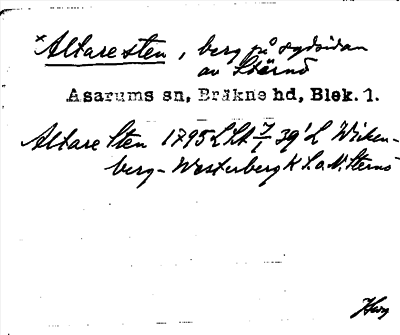 *Altare sten, berg på sydsidan
av Stärnö
Asarums sn, Bräkne hd, Blek. 1.
Altare Sten 1795 L Lt 7/1 39' L Wirken-
berg - Westerberg K S. o. N. Sternö